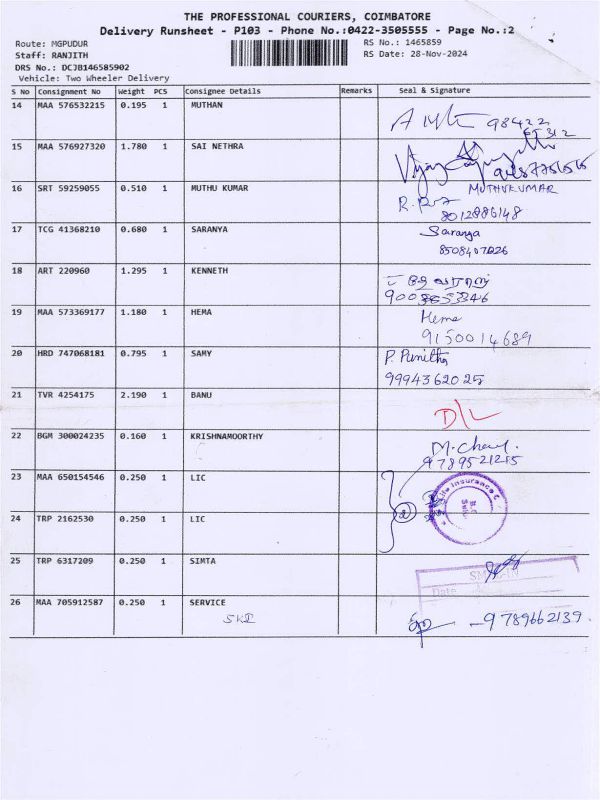 THE PROFESSIONAL COURIERS, COIMBATORE
Delivery Runsheet - P103 - Phone No.:0422-3505555 - Page No.:2
Route: MGPUDUR RS No.: 1465859
Staff: RANJITH RS Date: 28-Nov-2024
DRS No.: DCJB146585902
Vehicle: Two Wheeler Delivery
S No Consignment No Weight PCS Consignee Details Remarks Seal & Signature
14 MAA 576532215 0.195 1 MUTHAN
98422
15 MAA 576927320 1.780 1 SAI NETHRA
16 SRT 59259055 0.510 1 MUTHU KUMAR MUTHUKUMAR
8012886148
17 TCG 41368210 0.680 1 SARANYA Saranya
8508407026
18 ART 220960 1.295 1 KENNETH
19 MAA 573369177 1.180 1 HEMA Hema
9150014689
20 HRD 747068181 0.795 1 SAMY P. Punitha
9994362025
21 TVR 4254175 2.190 1 BANU
D/L
22 BGM 300024235 0.160 1 KRISHNAMOORTHY
9789521215
23 MAA 650154546 0.250 1 LIC
Life Insurance
2
24 TRP 2162530 0.250 1 LIC
25 TRP 6317209 0.250 1 SIMTA
Date
26 MAA 705912587 0.250 1 SERVICE
SKI
9789662139